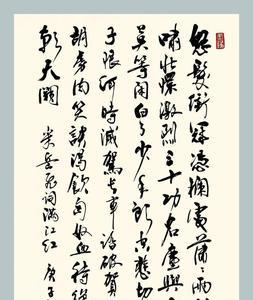 怒髮衝冠憑欄處蕭〻雨
嘯壯懷激烈三十功名塵與
莫等閒白了少年頭空悲切
子恨何時滅駕長車踏破賀
胡虜肉笑談渴飲匈奴血待從
朝天闕
录岳飛詞滿江紅 庚子